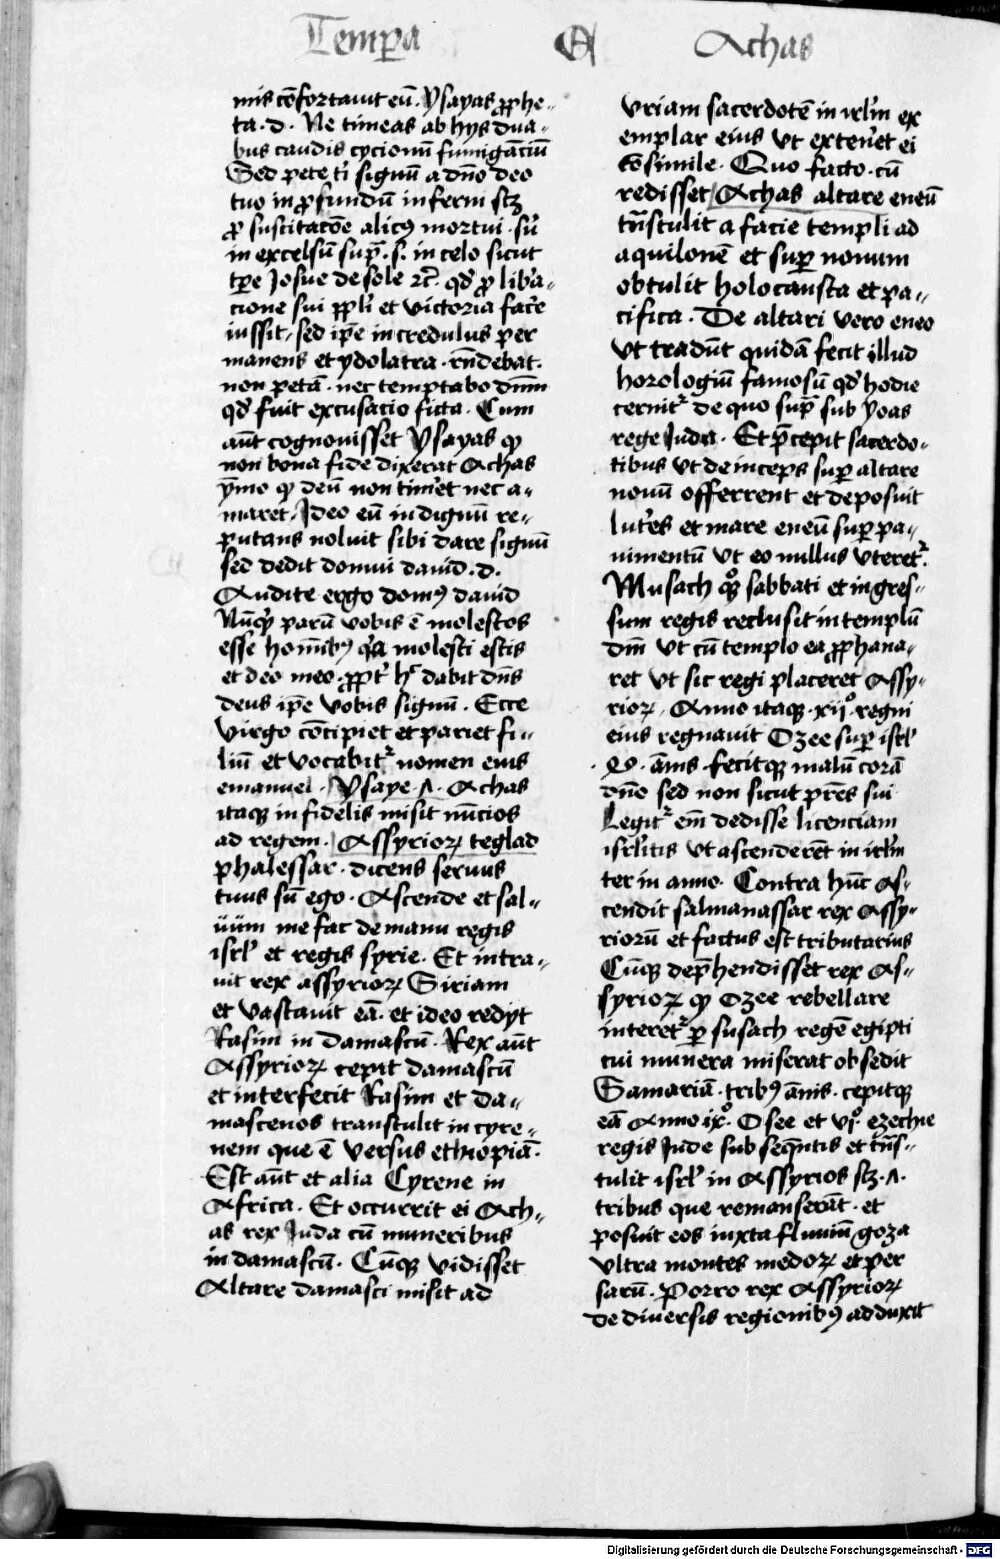 Tempa A Achas
mis cōfortauit eū. ysayas ꝓphe-
ta. d. Ne timeas ab hys dua-
bus caudis cycionū fumigāciū
Sed pete tˡ signū a dn̄o deo
tuo in ꝓfundū inferni scꝫ
ꝓ suscitacōe alicꝰ mortui. sū
in excelsū sup̄. s. in celo sicut
tꝑe Josue de sole ⁊c̄. qd̓ ꝓ libˀa-
cione sui ppl̓i et victoria facˀe
iussit, sed ip̄e incredulus per
manens et ydolatra. rn̄debat.
non petā. nec temptabo dnm̄
qd̓ fuit excusatio ficta. Cum
aūt cognouisset ysayas ꝙ
non bona fide dixerat Achas
ymo ꝙ deū non timˀet nec a-
maret. Ideo eū indignū re-
putans noluit sibi dare signū
sed dedit domui dauid. d.
Audite ergo domꝰ dauid
Nūqͥ parū vobis ē molestos
esse homībꝰ qͥa molesti estis
et deo meo. ꝓptˀ hͨ dabit dn̄s
deus ip̄e vobis signū. Ecce
virgo cōcipiet et pariet fi-
liū et vocabitᷣ nomen eius
emanuel. ysaye .ʌ. Achas
itaqꝫ infidelis misit nūcios
ad regem. Assyrioꝝ teglad
phalessar. dicens seruus
tuus sū ego. Ascende et sal-
uūm me fac de manu regis
isrl̓ et regis syrie. Et intra-
uit rex assyrioꝝ Siriam
et vastauit eā. et ideo redyt
Rasim in damascū. Rex aūt
Assyrioꝝ cepit damascū
et interfecit Rasim et da-
mascenos transtulit in cyre-
nem que ē versus ethiopiā.
Est aūt et alia Cyrene in
Africa. Et occurrit ei Ach-
as rex Juda cū muneribus
in damascū. Cūqꝫ vidisset
Altare damasci misit ad
vriam sacerdotē in irlˀm ex
emplar eius vt exteruˀet ei
cōsimile. Quo facto. cū
redisset Achas altare eneū
trn̄stulit a facie templi ad
aquilonē et suꝑ nouum
obtulit holocausta et pa-
cifica. De altari vero eneo
vt tradūt quidā fecit illud
horologiū famosū qd̓ hodie
cernitᷣ de quo sup̄ sub yoas
rege Juda. Et p̄cepit sacerdo-
tibus vt deinceps suꝑ altare
nouū offerrent et deposuit
lutˀes et mare eneū suꝑ pa-
uimentū vt eo nullus vteretᷣ
Musach qͦꝫ sabbati et ingres-
sum regis reclusit in templū
dm̄ vt cū templo ea ꝓphana-
ret vt sic regi placeret Assy-
rioꝝ. Anno itaqꝫ .xijͦ. regni
eius regnauit Ozee suꝑ isrl̓
.9. ānis. fecitqꝫ malū corā
dn̄o sed non sicut pr̄es sui
Legitᷣ em̄ dedisse licenciam
isrl̓itis vt ascenderēt in irlˀm
ter in anno. Contra hūc As-
cendit salmanassar rex Assy-
riorū et factus est tributarius
Cūqꝫ dep̄hendisset rex As-
syrioꝝ ꝙ Ozee rebellare
interetᷣ ꝑ susach regē egipti
cui munera miserat obsedit
Samariā. tribꝰ ānis. cepitqꝫ
eā Anno ixͦ. Osee et vjͦ. ezechie
regis Jude subseq̄ntis et trn̄s-
tulit isrl̓ in Assyrios scꝫ .ʌ.
tribus que remanserāt. et
posuit eos iuxta fluuiū goza
vltra montes medoꝝ et per
sarū. Porro rex Assyrioꝝ
de diuersis regionibꝰ adduxit
Digitalisierung gefördert durch die Deutsche Forschungsgemeinschaft - DFG